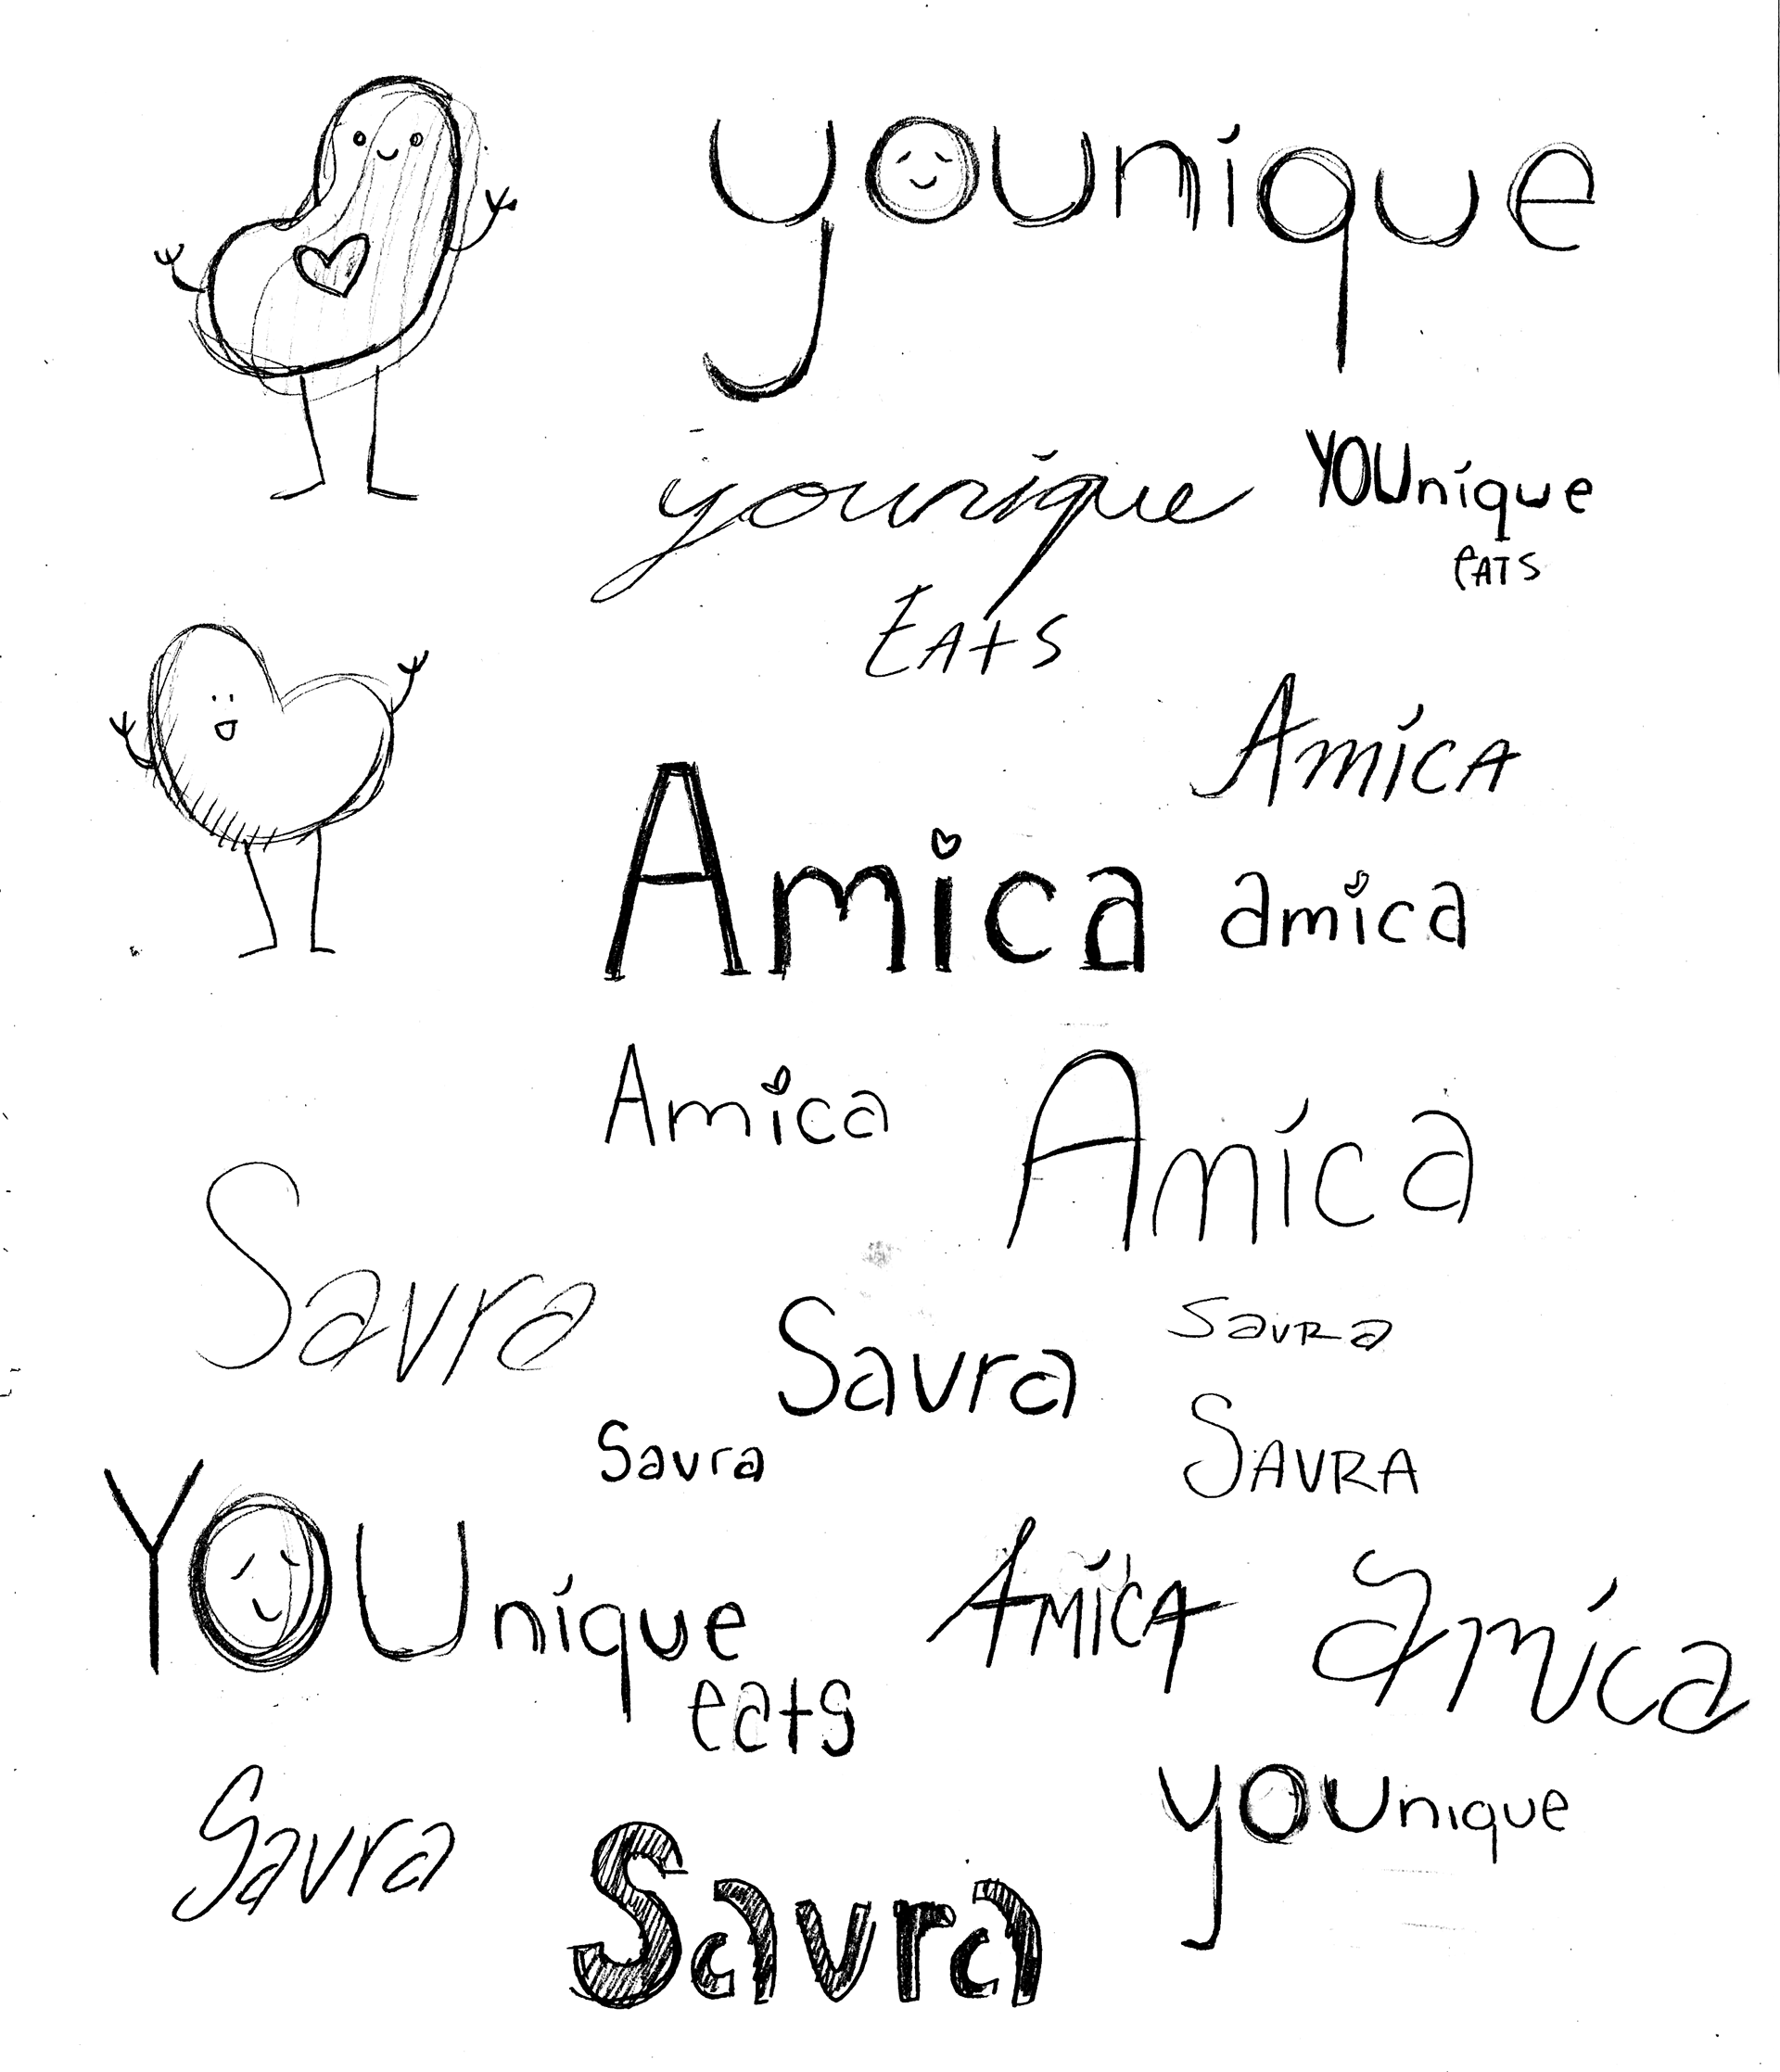 younique
younique
EATS
YOUnique
eATS
AmicA
Amica
amica
Amica
Amica
Savra
Savra
SavRa
Savra
SAVRA
YOUnique
eats
AMiCA
amica
younique
Savra
Savra